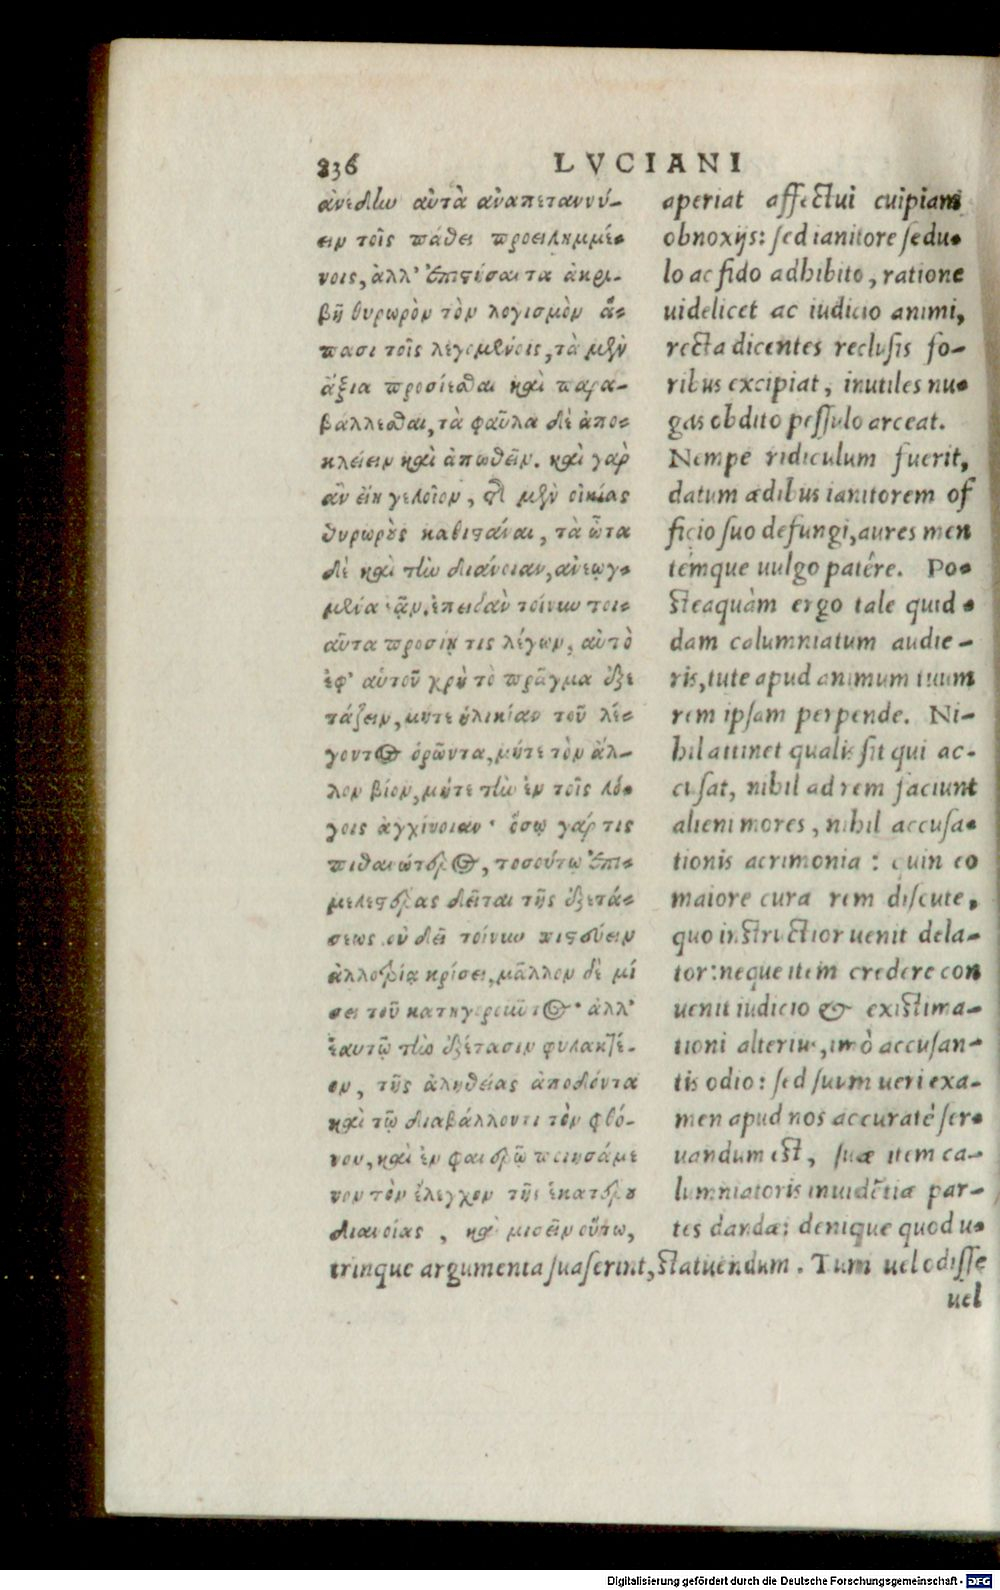 236 LVCIANI
ἀνέδην αὐτὰ ἀναπεταννύ-
ειν τοῖς πάθει προειλημμέ-
νοις, ἀλλ' ἐπιστήσαντα ἀκρι-
βῆ θυρωρὸν τὸν λογισμὸν ἅ-
πασι τοῖς λεγομένοις, τὰ μὲν
ἄξια προσίεσθαι καὶ παρα-
βάλλεσθαι, τὰ φαῦλα δὲ ἀπο-
κλείειν καὶ ἀπωθεῖν. καὶ γὰρ
ἂν εἴη γελοῖον, τῆς μὲν οἰκίας
θυρωροὺς καθιστάναι, τὰ ὦτα
δὲ καὶ τὴν διάνοιαν, ἀνεῳγ-
μένα ἐᾷν. ἐπειδὰν τοίνυν τοι-
αῦτα προσίῃ τις λέγων, αὐτὸ
ἐφ' αὑτοῦ χρὴ τὸ πρᾶγμα ἐξε
τάζειν, μήτε ἡλικίαν τοῦ λέ-
γοντος ὁρῶντα, μήτε τὸν ἄλ-
λον βίον, μήτε τὴν ἐν τοῖς λό-
γοις ἀγχίνοιαν· ὅσῳ γάρ τις
πιθανώτερος, τοσούτῳ ἐπι-
μελεστέρας δεῖται τῆς ἐξετά-
σεως. οὐ δεῖ τοίνυν πιστεύειν
ἀλλοτρίᾳ κρίσει, μᾶλλον δὲ μί
σει τοῦ κατηγοροῦντος· ἀλλ'
ἑαυτῷ τὴν ἐξέτασιν φυλακτέ-
ον, τῆς ἀληθείας ἀποδόντα
καὶ τῷ διαβάλλοντι τὸν φθό-
νον, καὶ ἐν φανερῷ ποιησάμε
νον τὸν ἔλεγχον τῆς ἑκατέρου
διανοίας, καὶ μισεῖν οὕτω,
aperiat affectui cuipiam
obnoxijs: sed ianitore sedu-
lo ac fido adhibito, ratione
uidelicet ac iudicio animi,
recta dicentes reclusis fo-
ribus excipiat, inutiles nu-
gas obdito pessulo arceat.
Nempe ridiculum fuerit,
datum ædibus ianitorem of
ficio suo defungi, aures men
témque uulgo patêre. Po-
steaquàm ergo tale quid-
dam calumniatum audie-
ris, tute apud animum tuum
rem ipsam perpende. Ni-
hil attinet qualis sit qui ac-
cusat, nihil ad rem faciunt
alieni mores, nihil accusa-
tionis acrimonia: quin eo
maiore cura rem discute,
quo instructior uenit dela-
tor: neque item credere con
uenit iudicio & existima-
tioni alterius, imò accusan-
tis odio: sed suum ueri exa-
men apud nos accuratè ser-
uandum est, suæ item ca-
lumniatoris inuidẽtiæ par-
tes dandæ: denique quod u-
trinque argumenta suaserint, statuendum. Tum uel odisse
uel
Digitalisierung gefördert durch die Deutsche Forschungsgemeinschaft - DFG